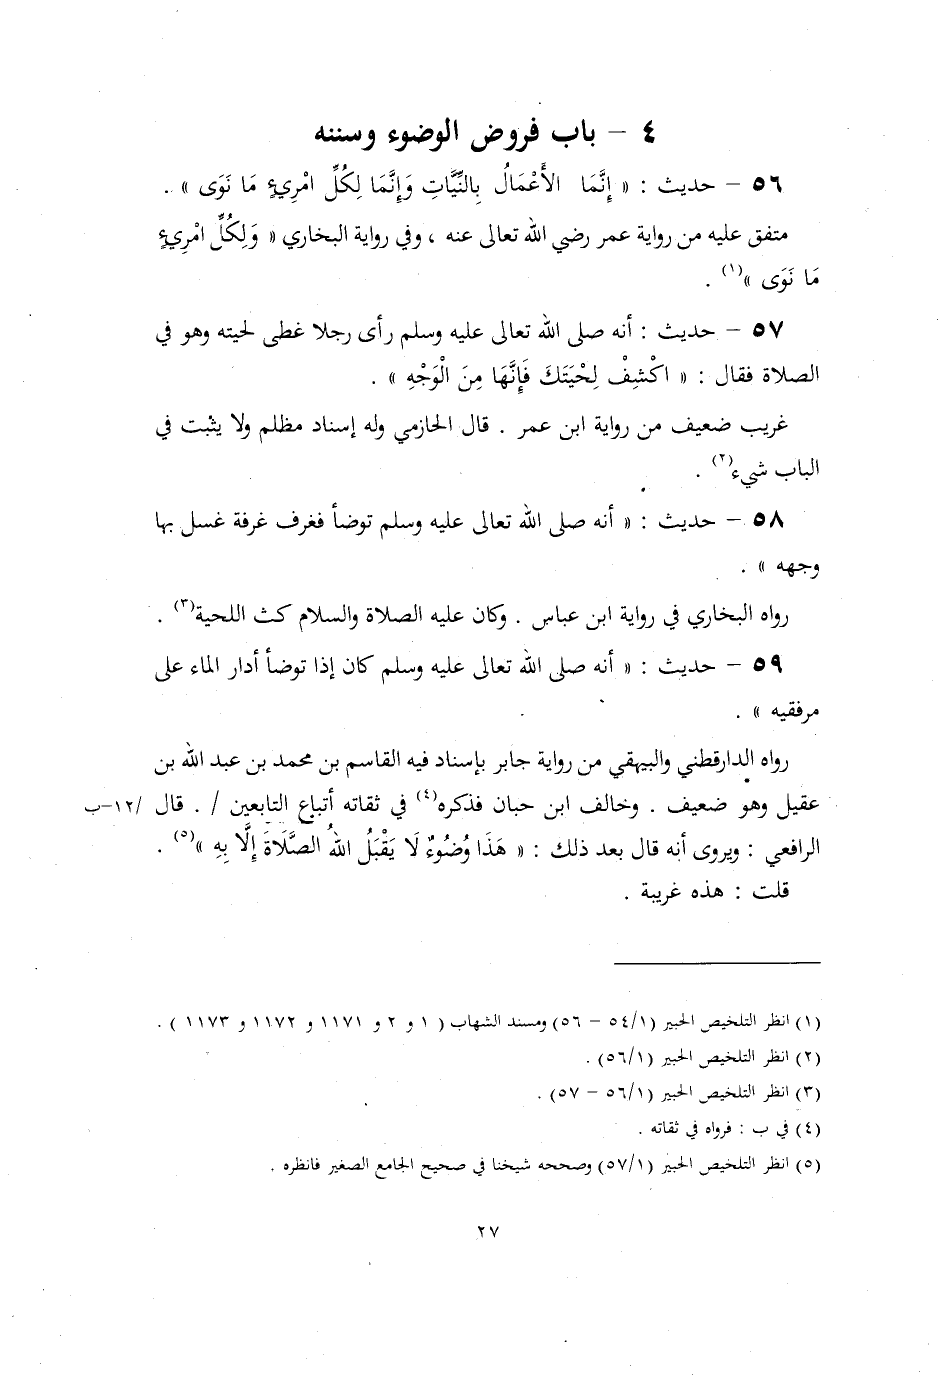 ٤ - باب فروض الوضوء وسننه
٥٦ - حديث : « إِنَّمَا الأَعْمَالُ بِالنِّيَّاتِ وَإِنَّمَا لِكُلِّ امْرِيءٍ مَا نَوَى » .
متفق عليه من رواية عمر رضي الله تعالى عنه ، وفي رواية البخاري « وَلِكُلِّ امْرِيءٍ
مَا نَوَى »(١) .
٥٧ - حديث : أنه صلى الله تعالى عليه وسلم رأى رجلا غطى لحيته وهو في
الصلاة فقال : « اكْشِفْ لِحْيَتَكَ فَإِنَّهَا مِنَ الْوَجْهِ » .
غريب ضعيف من رواية ابن عمر . قال الحازمي وله إسناد مظلم ولا يثبت في
الباب شيء(٢) .
٥٨ - حديث : « أنه صلى الله تعالى عليه وسلم توضأ فغرف غرفة غسل بها
وجهه » .
رواه البخاري في رواية ابن عباس . وكان عليه الصلاة والسلام كث اللحية(٣) .
٥٩ - حديث : « أنه صلى الله تعالى عليه وسلم كان إذا توضأ أدار الماء على
مرفقيه » .
رواه الدارقطني والبيهقي من رواية جابر بإسناد فيه القاسم بن محمد بن عبد الله بن
عقيل وهو ضعيف . وخالف ابن حبان فذكره(٤) في ثقاته أتباع التابعين / . قال /١٢-ب
الرافعي : ويروى أنه قال بعد ذلك : « هَذَا وُضُوءٌ لَا يَقْبَلُ اللهُ الصَّلَاةَ إِلَّا بِهِ »(٥) .
قلت : هذه غريبة .
(١) انظر التلخيص الحبير (٥٤/١ - ٥٦) ومسند الشهاب ( ١ و ٢ و ١١٧١ و ١١٧٢ و ١١٧٣ ) .
(٢) انظر التلخيص الحبير (٥٦/١) .
(٣) انظر التلخيص الحبير (٥٦/١ - ٥٧) .
(٤) في ب : فرواه في ثقاته .
(٥) انظر التلخيص الحبير (٥٧/١) وصححه شيخنا في صحيح الجامع الصغير فانظره .
٢٧